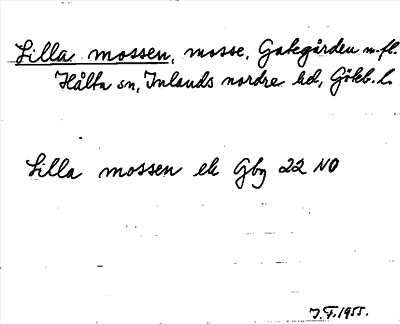 Lilla mossen, mosse, Gategården m.fl.
Hålta sn, Inlands nordre hd, Göteb. l.
Lilla mossen ek Gbg 22 NO
J.F. 1955.